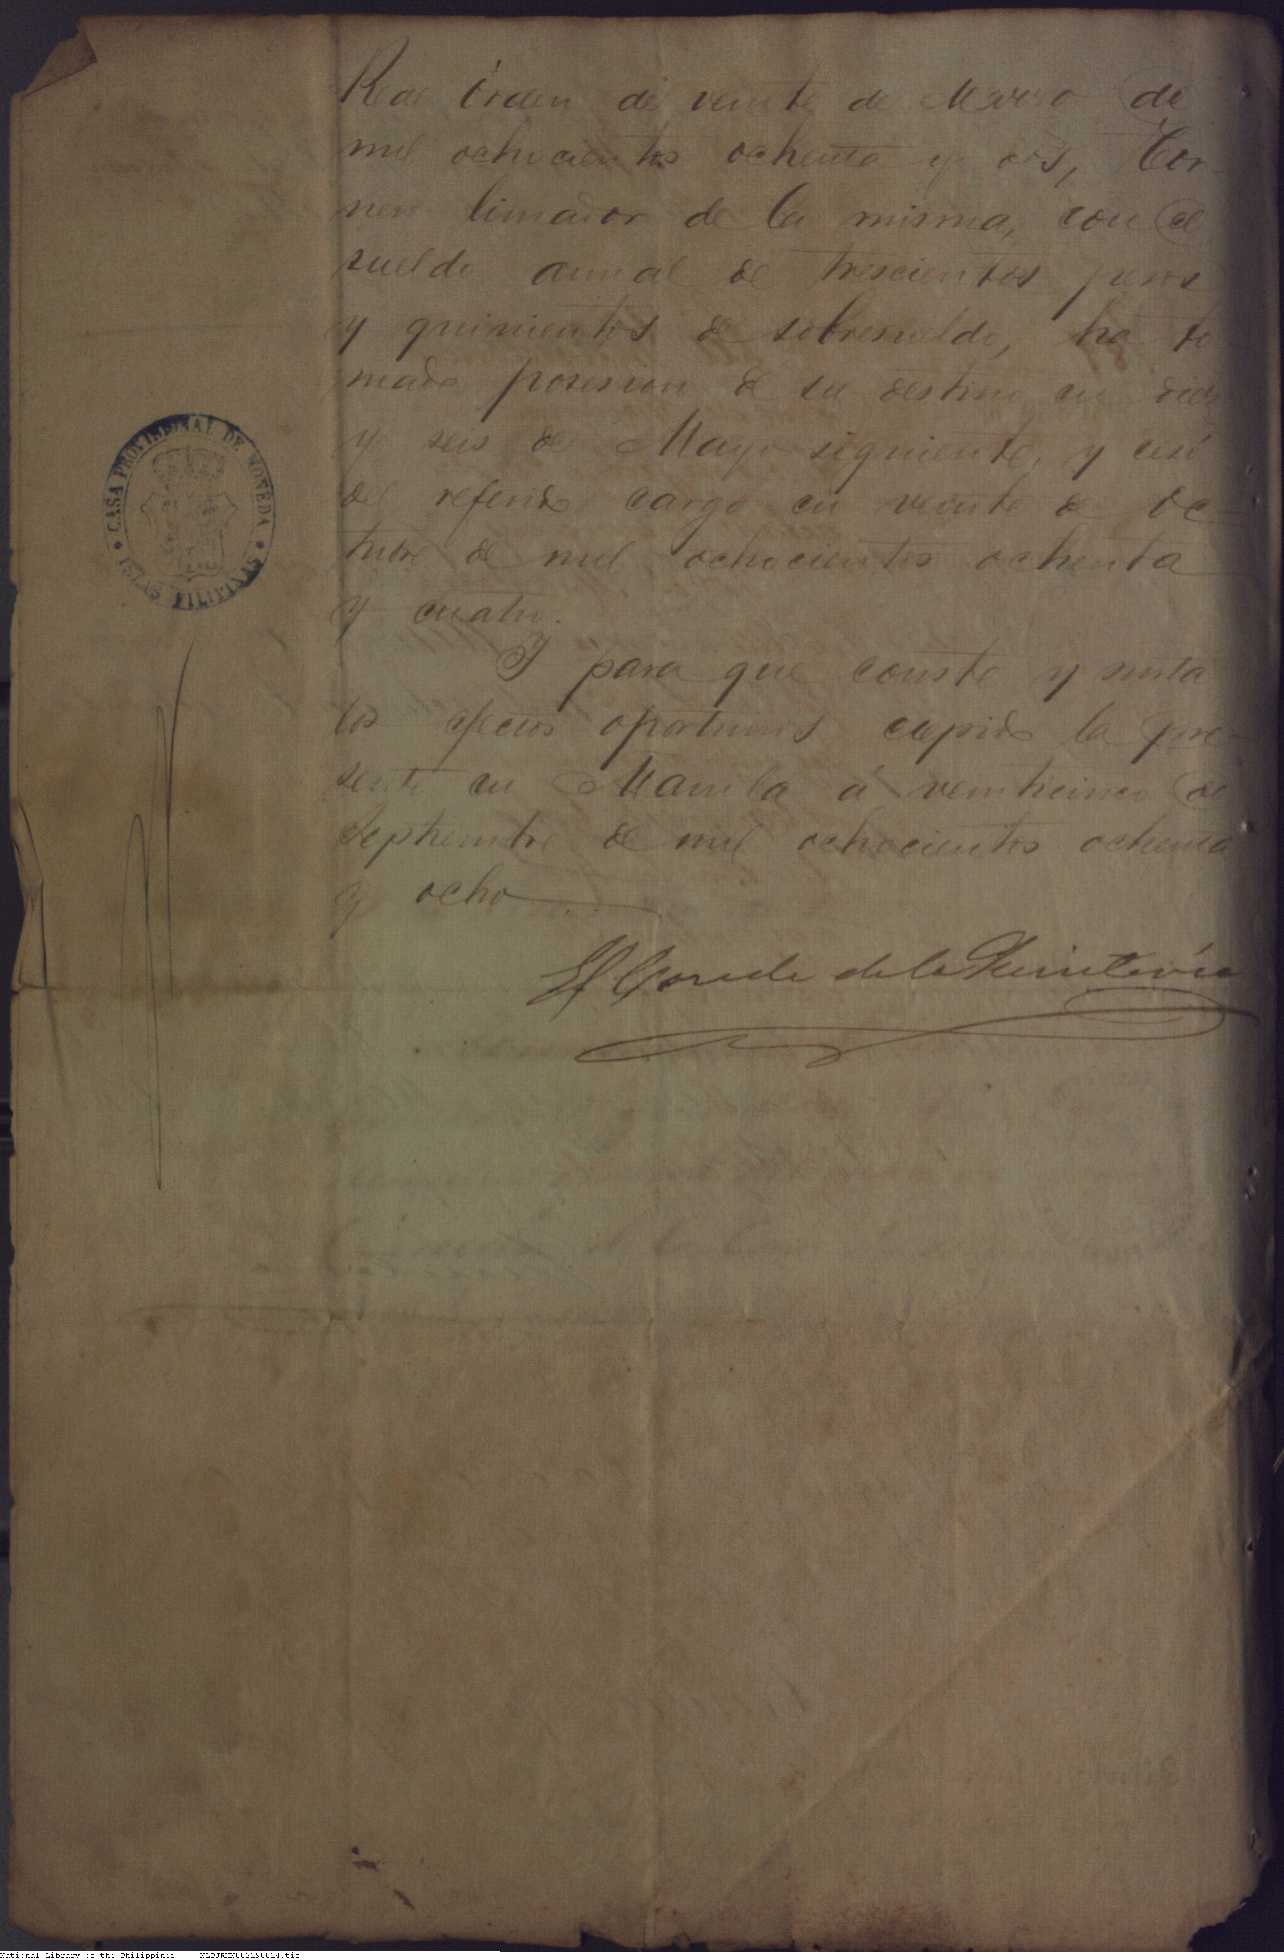 Real órden de veinte de Marzo de
mil ochocientos ochenta y dos, Tor-
nero limador de la misma, con el
sueldo anual de trescientos pesos
y quinientos de sobresueldo, ha to
mado posesion de su destino en diez
y seis de Mayo siguiente, y cesó
del referido cargo en veinte de Oc-
tubre de mil ochocientos ochenta
y cuatro.
Y para que conste y surta
los efectos oportunos expido la pre-
sente en Manila á veinticinco de
Septiembre de mil ochocientos ochenta
y ocho
El Conde de la
CASA PROVISIONAL DE MONEDA
ISLAS FILIPINAS
National Library of the Philippines